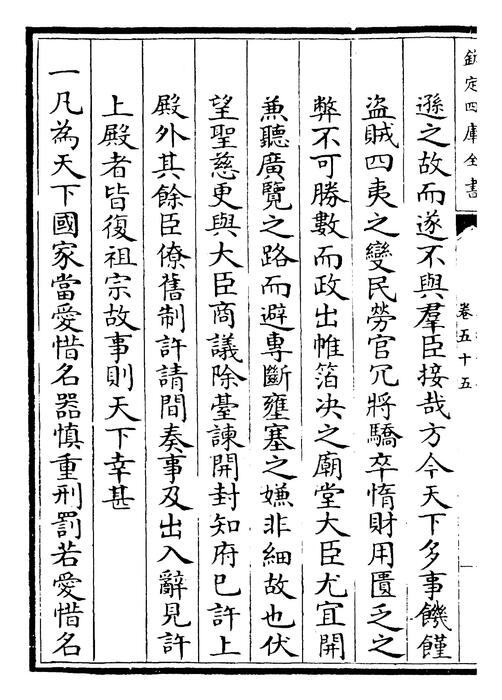 欽定四庫全書
卷五十五
遜之故而遂不與羣臣接哉方今天下多事饑饉
盗賊四夷之變民勞官冗將驕卒惰財用匱乏之
弊不可勝數而政出帷箔决之廟堂大臣尤宜開
兼聽廣覽之路而避專斷壅塞之嫌非細故也伏
望聖慈更與大臣商議除臺諫開封知府已許上
殿外其餘臣僚舊制許請間奏事及出入辭見許
上殿者皆復祖宗故事則天下幸甚
一凡為天下國家當愛惜名器慎重刑罰若愛惜名